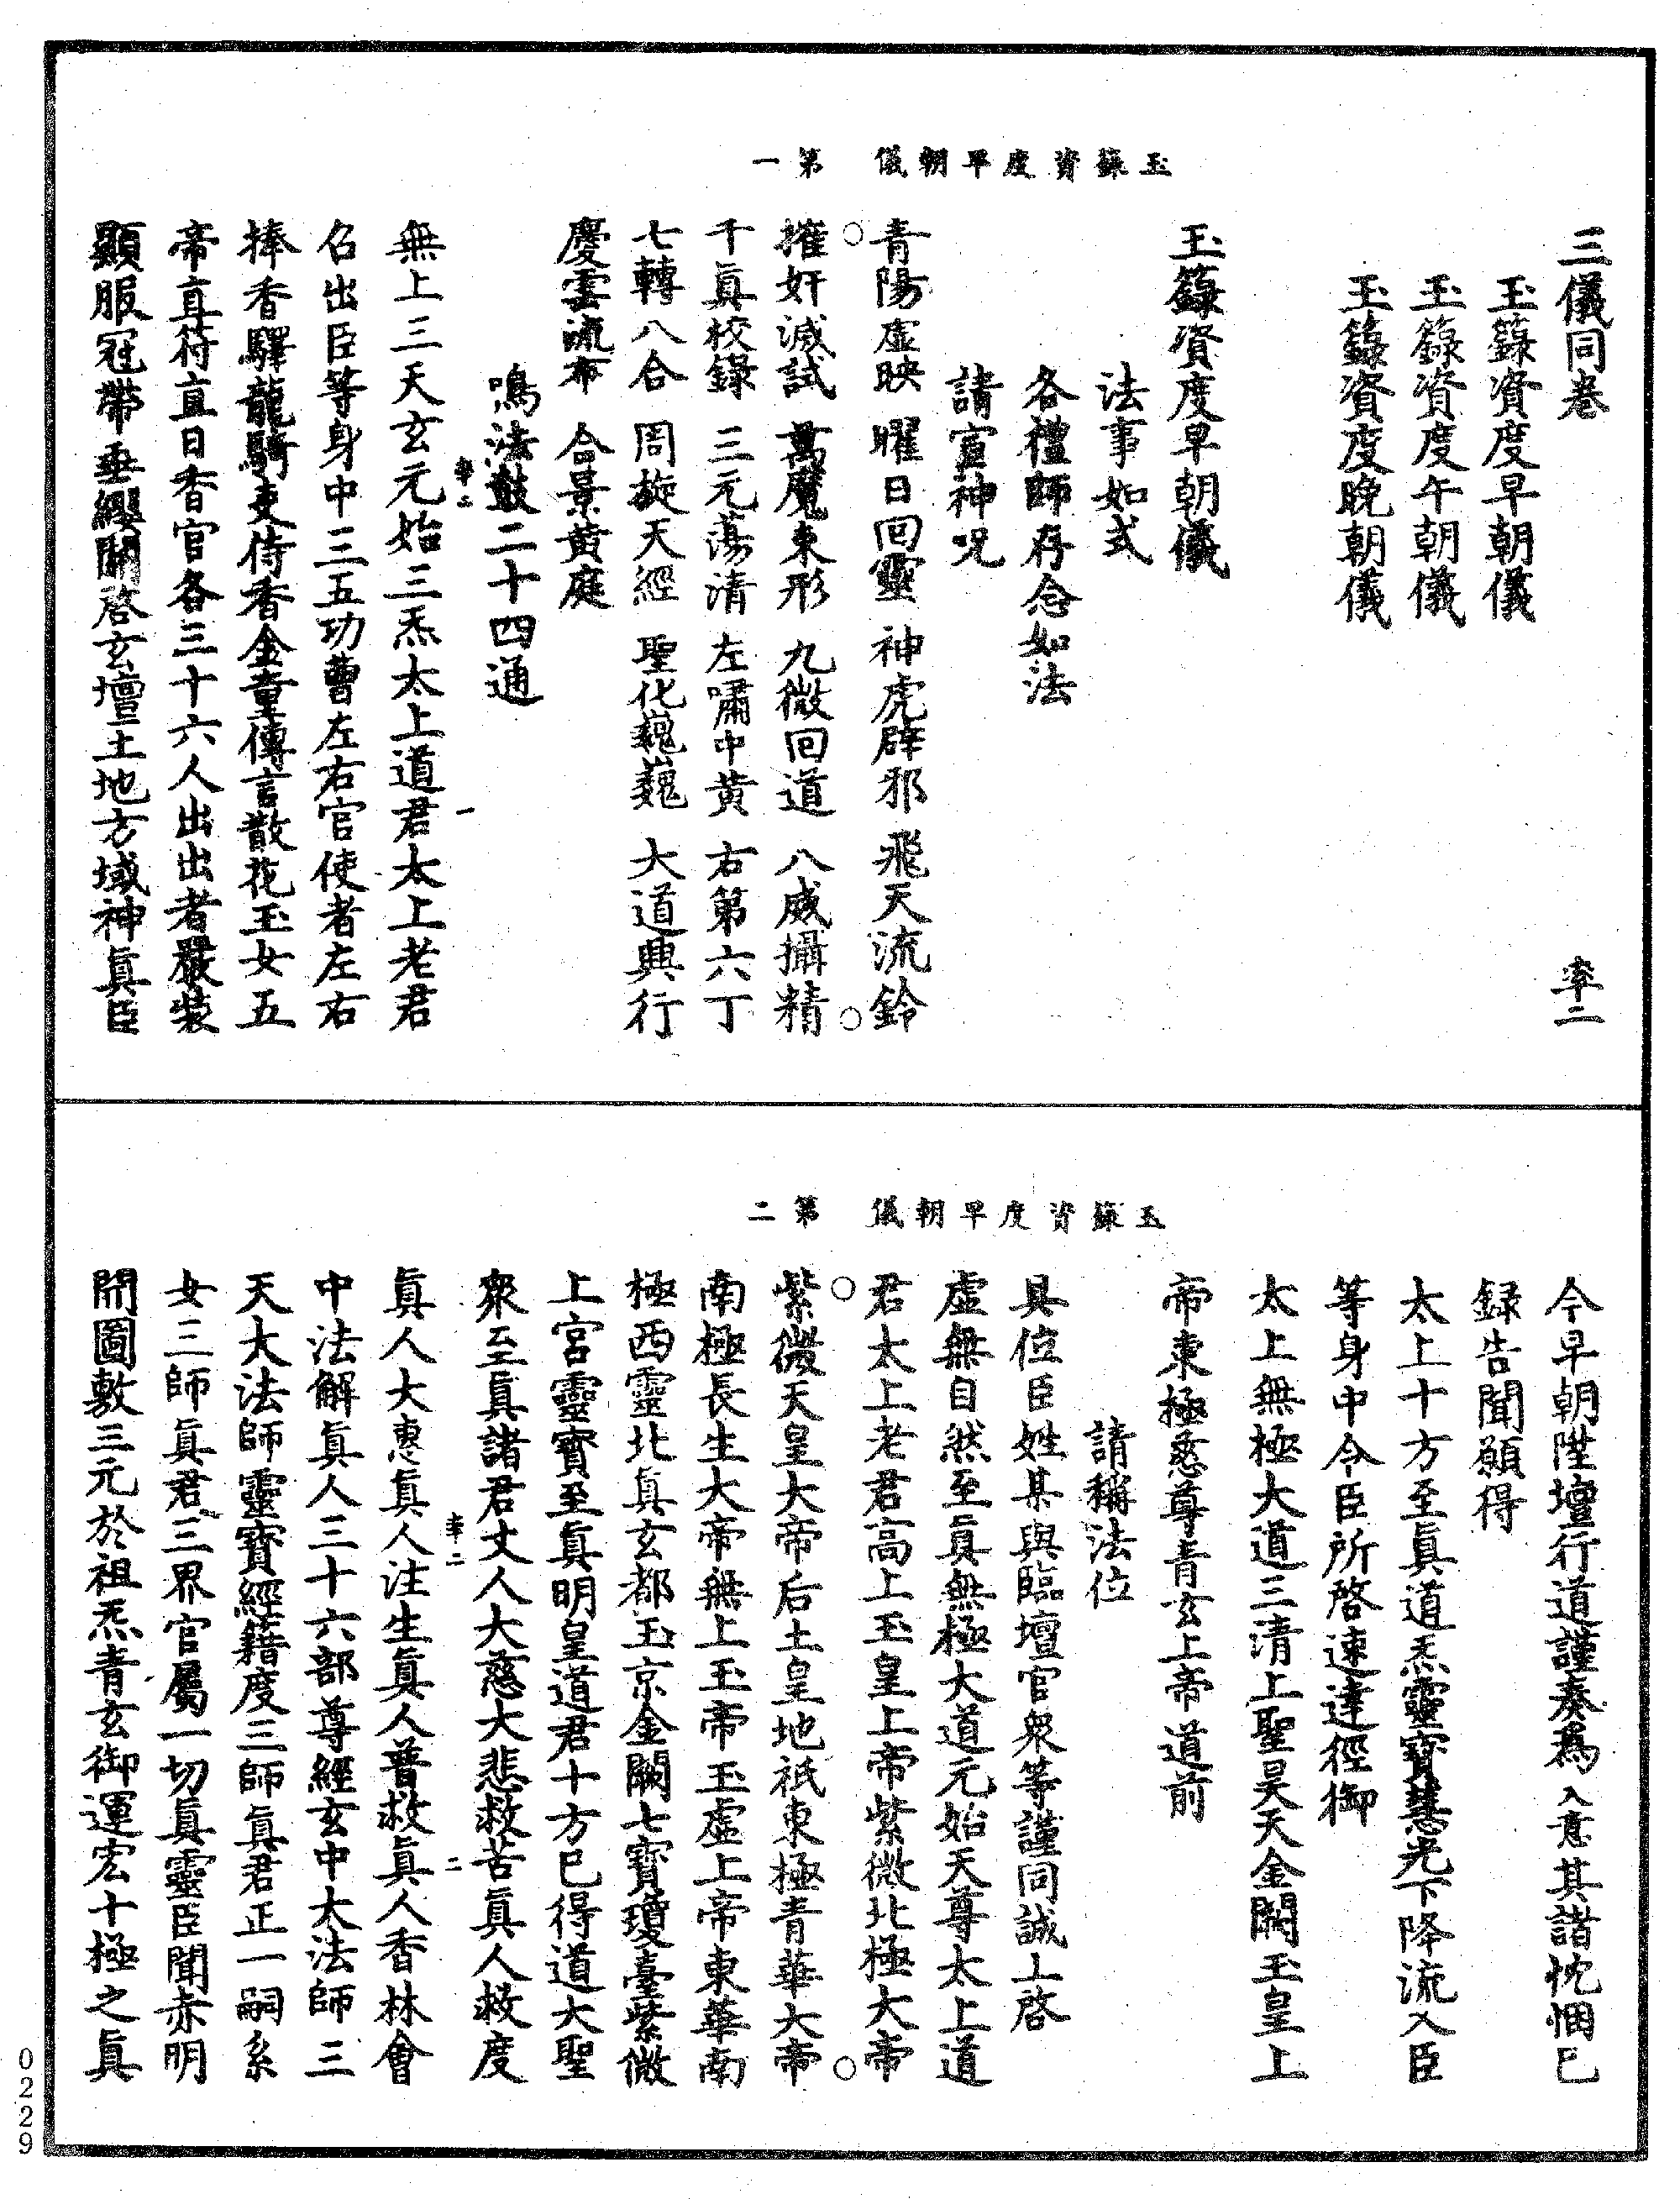 玉籙資度早朝儀　第一
三儀同卷　率二
玉籙資度早朝儀
玉籙資度午朝儀
玉籙資度晚朝儀
玉籙資度早朝儀
法事如式
各禮師存念如法
請宣神呪
青陽虛映　曜日回靈　神虎辟邪　飛天流鈴
摧奸滅試　萬魔束形　九微回道　八威攝精
千真校錄　三元蕩清　左嘯中黃　右第六丁
七轉八合　周旋天經　聖化巍巍　大道興行
慶雲流布　合景黃庭
鳴法鼓二十四通
率二　一
無上三天玄元始三炁太上道君太上老君
召出臣等身中三五功曹左右官使者左右
捧香驛龍騎吏侍香金童傳言散花玉女五
帝直符直日香官各三十六人出出者嚴裝
顯服冠帶垂纓關啓玄壇土地方域神真臣
玉籙資度早朝儀　第二
今早朝陞壇行道謹奏為入意其諸忱悃已
錄告聞願得
太上十方至真道炁靈寶慧光下降流入臣
等身中令臣所啓速達徑御
太上無極大道三清上聖昊天金闕玉皇上
帝東極慈尊青玄上帝道前
請稱法位
具位臣姓某與臨壇官衆等謹同誠上啓
虛無自然至真無極大道元始天尊太上道
君太上老君高上玉皇上帝紫微北極大帝
紫微天皇大帝后土皇地祇東極青華大帝
南極長生大帝無上玉帝玉虛上帝東華南
極西靈北真玄都玉京金闕七寶瓊臺紫微
上宮靈寶至真明皇道君十方已得道大聖
衆至真諸君丈人大慈大悲救苦真人救度
率二　二
真人大惠真人注生真人普救真人香林會
中法解真人三十六部尊經玄中大法師三
天大法師靈寶經籍度三師真君正一嗣系
女三師真君三界官屬一切真靈臣聞赤明
開圖敷三元於祖炁青玄御運宏十極之真
0229